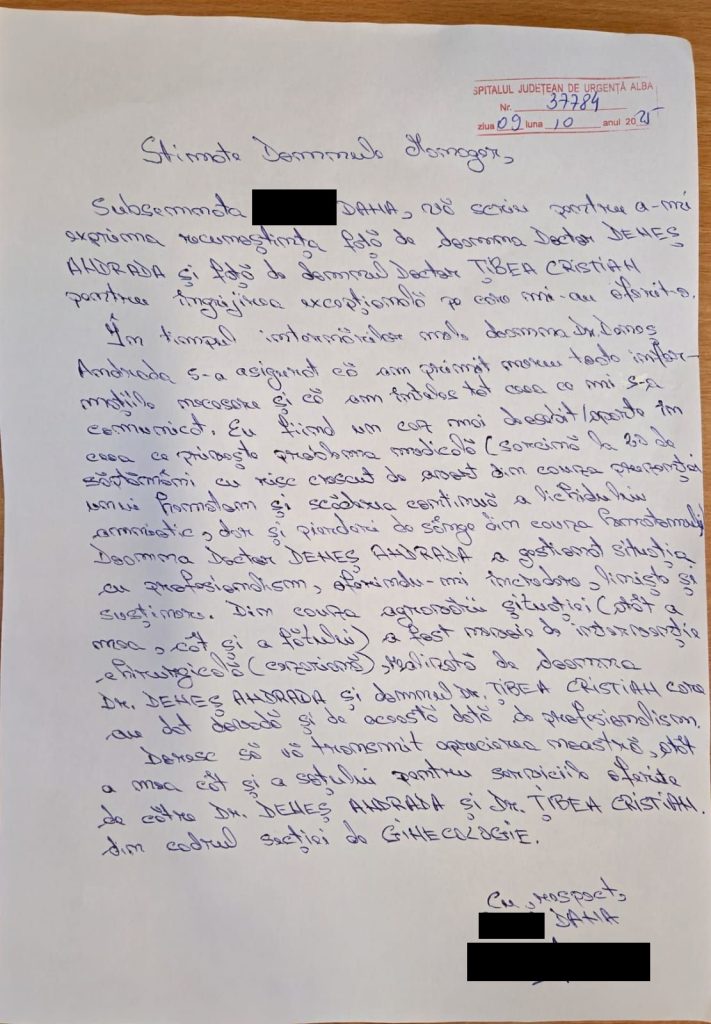 SPITALUL JUDEȚEAN DE URGENȚĂ ALBA
Nr. 37784
ziua 09 luna 10 anul 2025
Stimate Domnule Manager,
Subsemnata DANA, vă scriu pentru a-mi
exprima recunoștința față de doamna Doctor DENEȘ
ANDRADA și față de domnul Doctor ȚIBEA CRISTIAN
pentru îngrijirea excepțională pe care mi-au oferit-o.
În timpul internărilor mele doamna Dr. Deneș
Andrada s-a asigurat că am primit mereu toate infor-
mațiile necesare și că am înțeles tot ceea ce mi s-a
comunicat. Eu fiind un caz mai deosebit/aparte în
ceea ce privește problema medicală (sarcină la 20 de
săptămâni cu risc crescut de avort din cauza prezenței
unui hematom și scăderea continuă a lichidului
amniotic, dar și pierderi de sânge din cauza hematomului)
Doamna Doctor DENEȘ ANDRADA a gestionat situația
cu profesionalism, oferindu-mi încredere, liniște și
susținere. Din cauza agravării situației (atât a
mea, cât și a fătului) a fost nevoie de intervenție
chirurgicală (cezariană), realizată de doamna
Dr. DENEȘ ANDRADA și domnul Dr. ȚIBEA CRISTIAN care
au dat dovadă și de această dată de profesionalism.
Doresc să vă transmit aprecierea noastră, atât
a mea cât și a soțului pentru serviciile oferite
de către Dr. DENEȘ ANDRADA și Dr. ȚIBEA CRISTIAN.
din cadrul secției de GINECOLOGIE.
Cu respect,
DANA